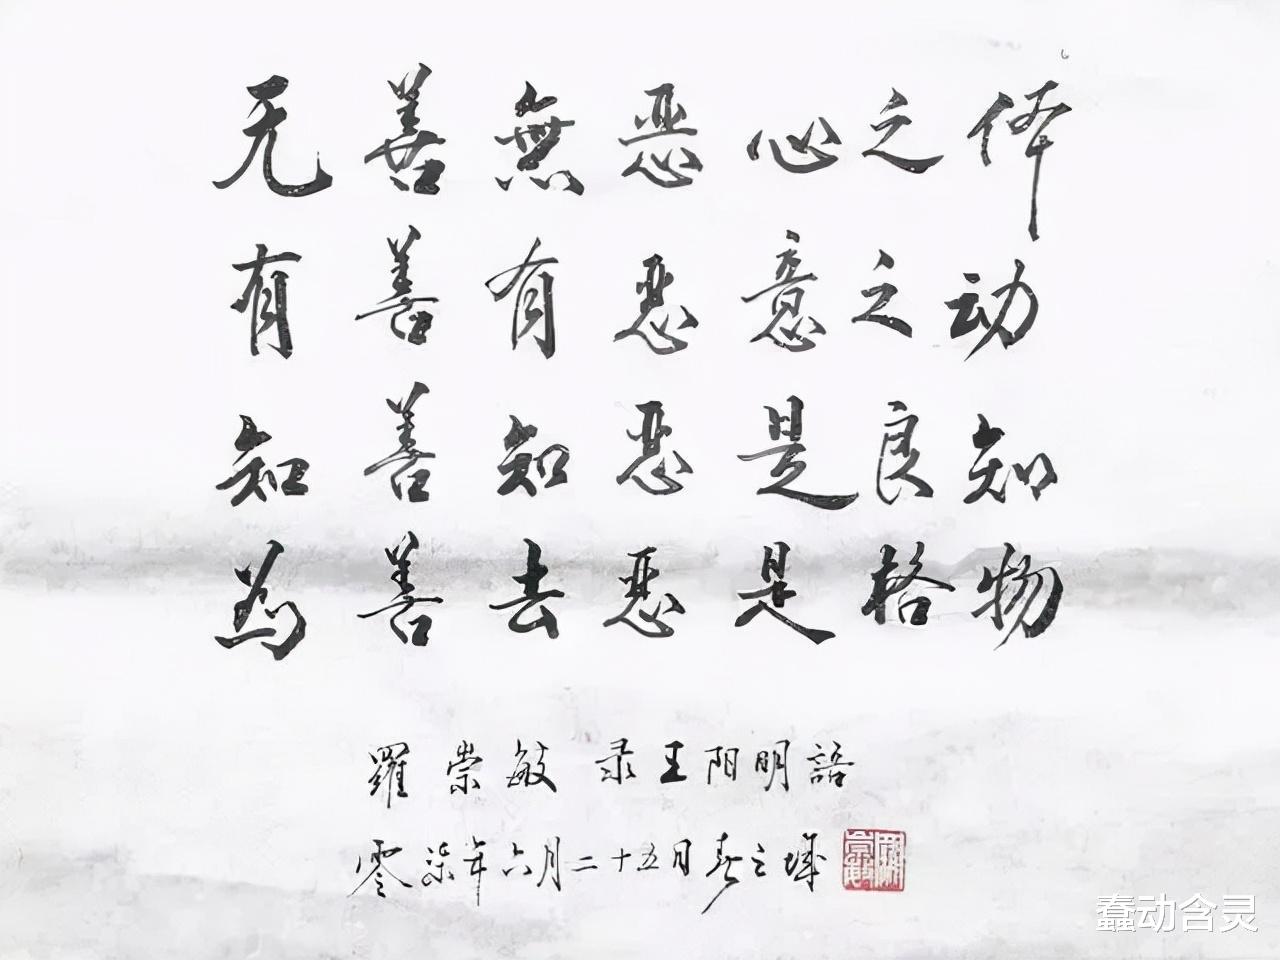 无善無恶心之体
有善有恶意之动
知善知恶是良知
为善去恶是格物
羅崇敏录王阳明語
零柒年六月二十五日春之城
蠢动含灵